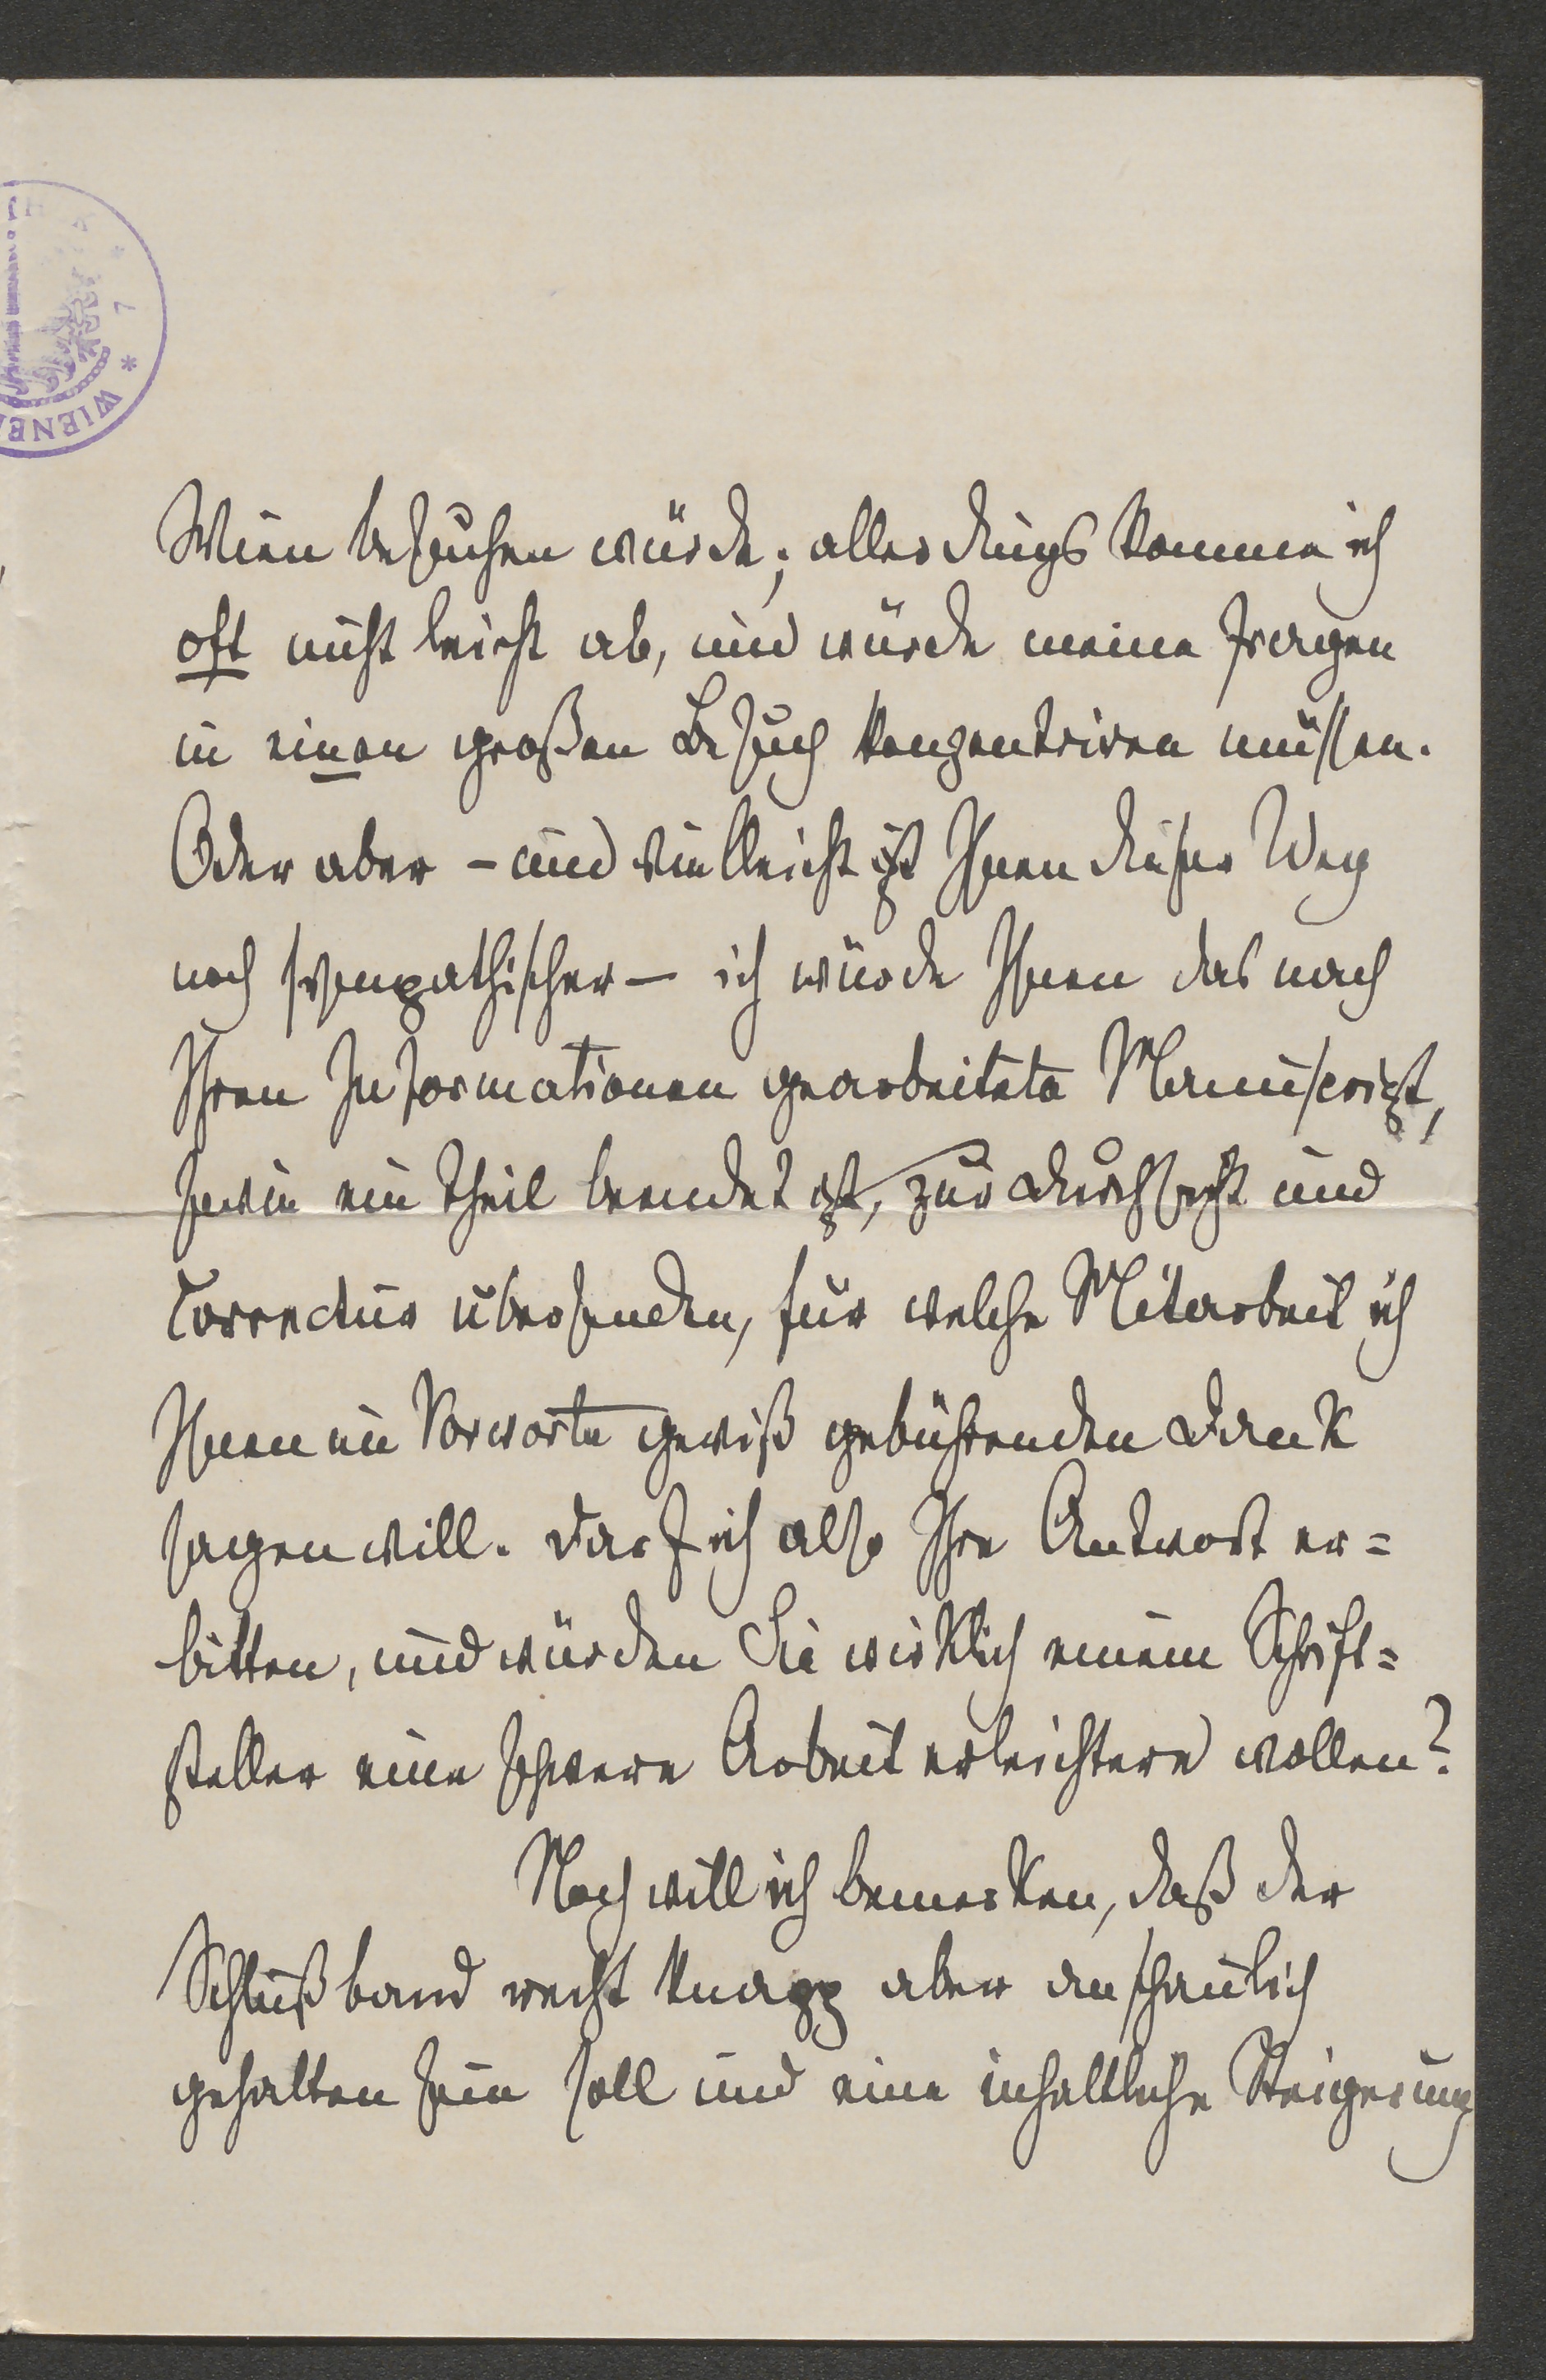 WIENE
Wien besuchen würde; allerdings komme ich
oft nicht leicht ab, und würde meine Fragen
in einen großen Besuch konzentriren müssen.
Oder aber – und vielleicht ist Ihnen dieser Weg
noch sympathischer – ich würde Ihnen das nach
Ihren Informationen gearbeitete Manuscript,
sowie ein Theil beendet ist, zur Durchsicht und
Correctur übersenden, für welche Mitarbeit ich
Ihnen im Vorworte gewiß gebührenden Dank
sagen will. Darf ich also Ihre Antwort er=
bitten, und würden Sie wirklich einem Schrift=
steller eine schwere Arbeit erleichtern wollen?
Noch will ich bemerken, daß der
Schlußband recht knapp aber anschaulich
gehalten sein soll und eine inhaltliche Steigerung